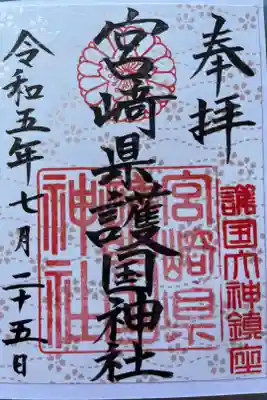 奉拝
護国大神鎮座
宮崎県護国神社
宮崎県護国神社
令和五年七月二十五日